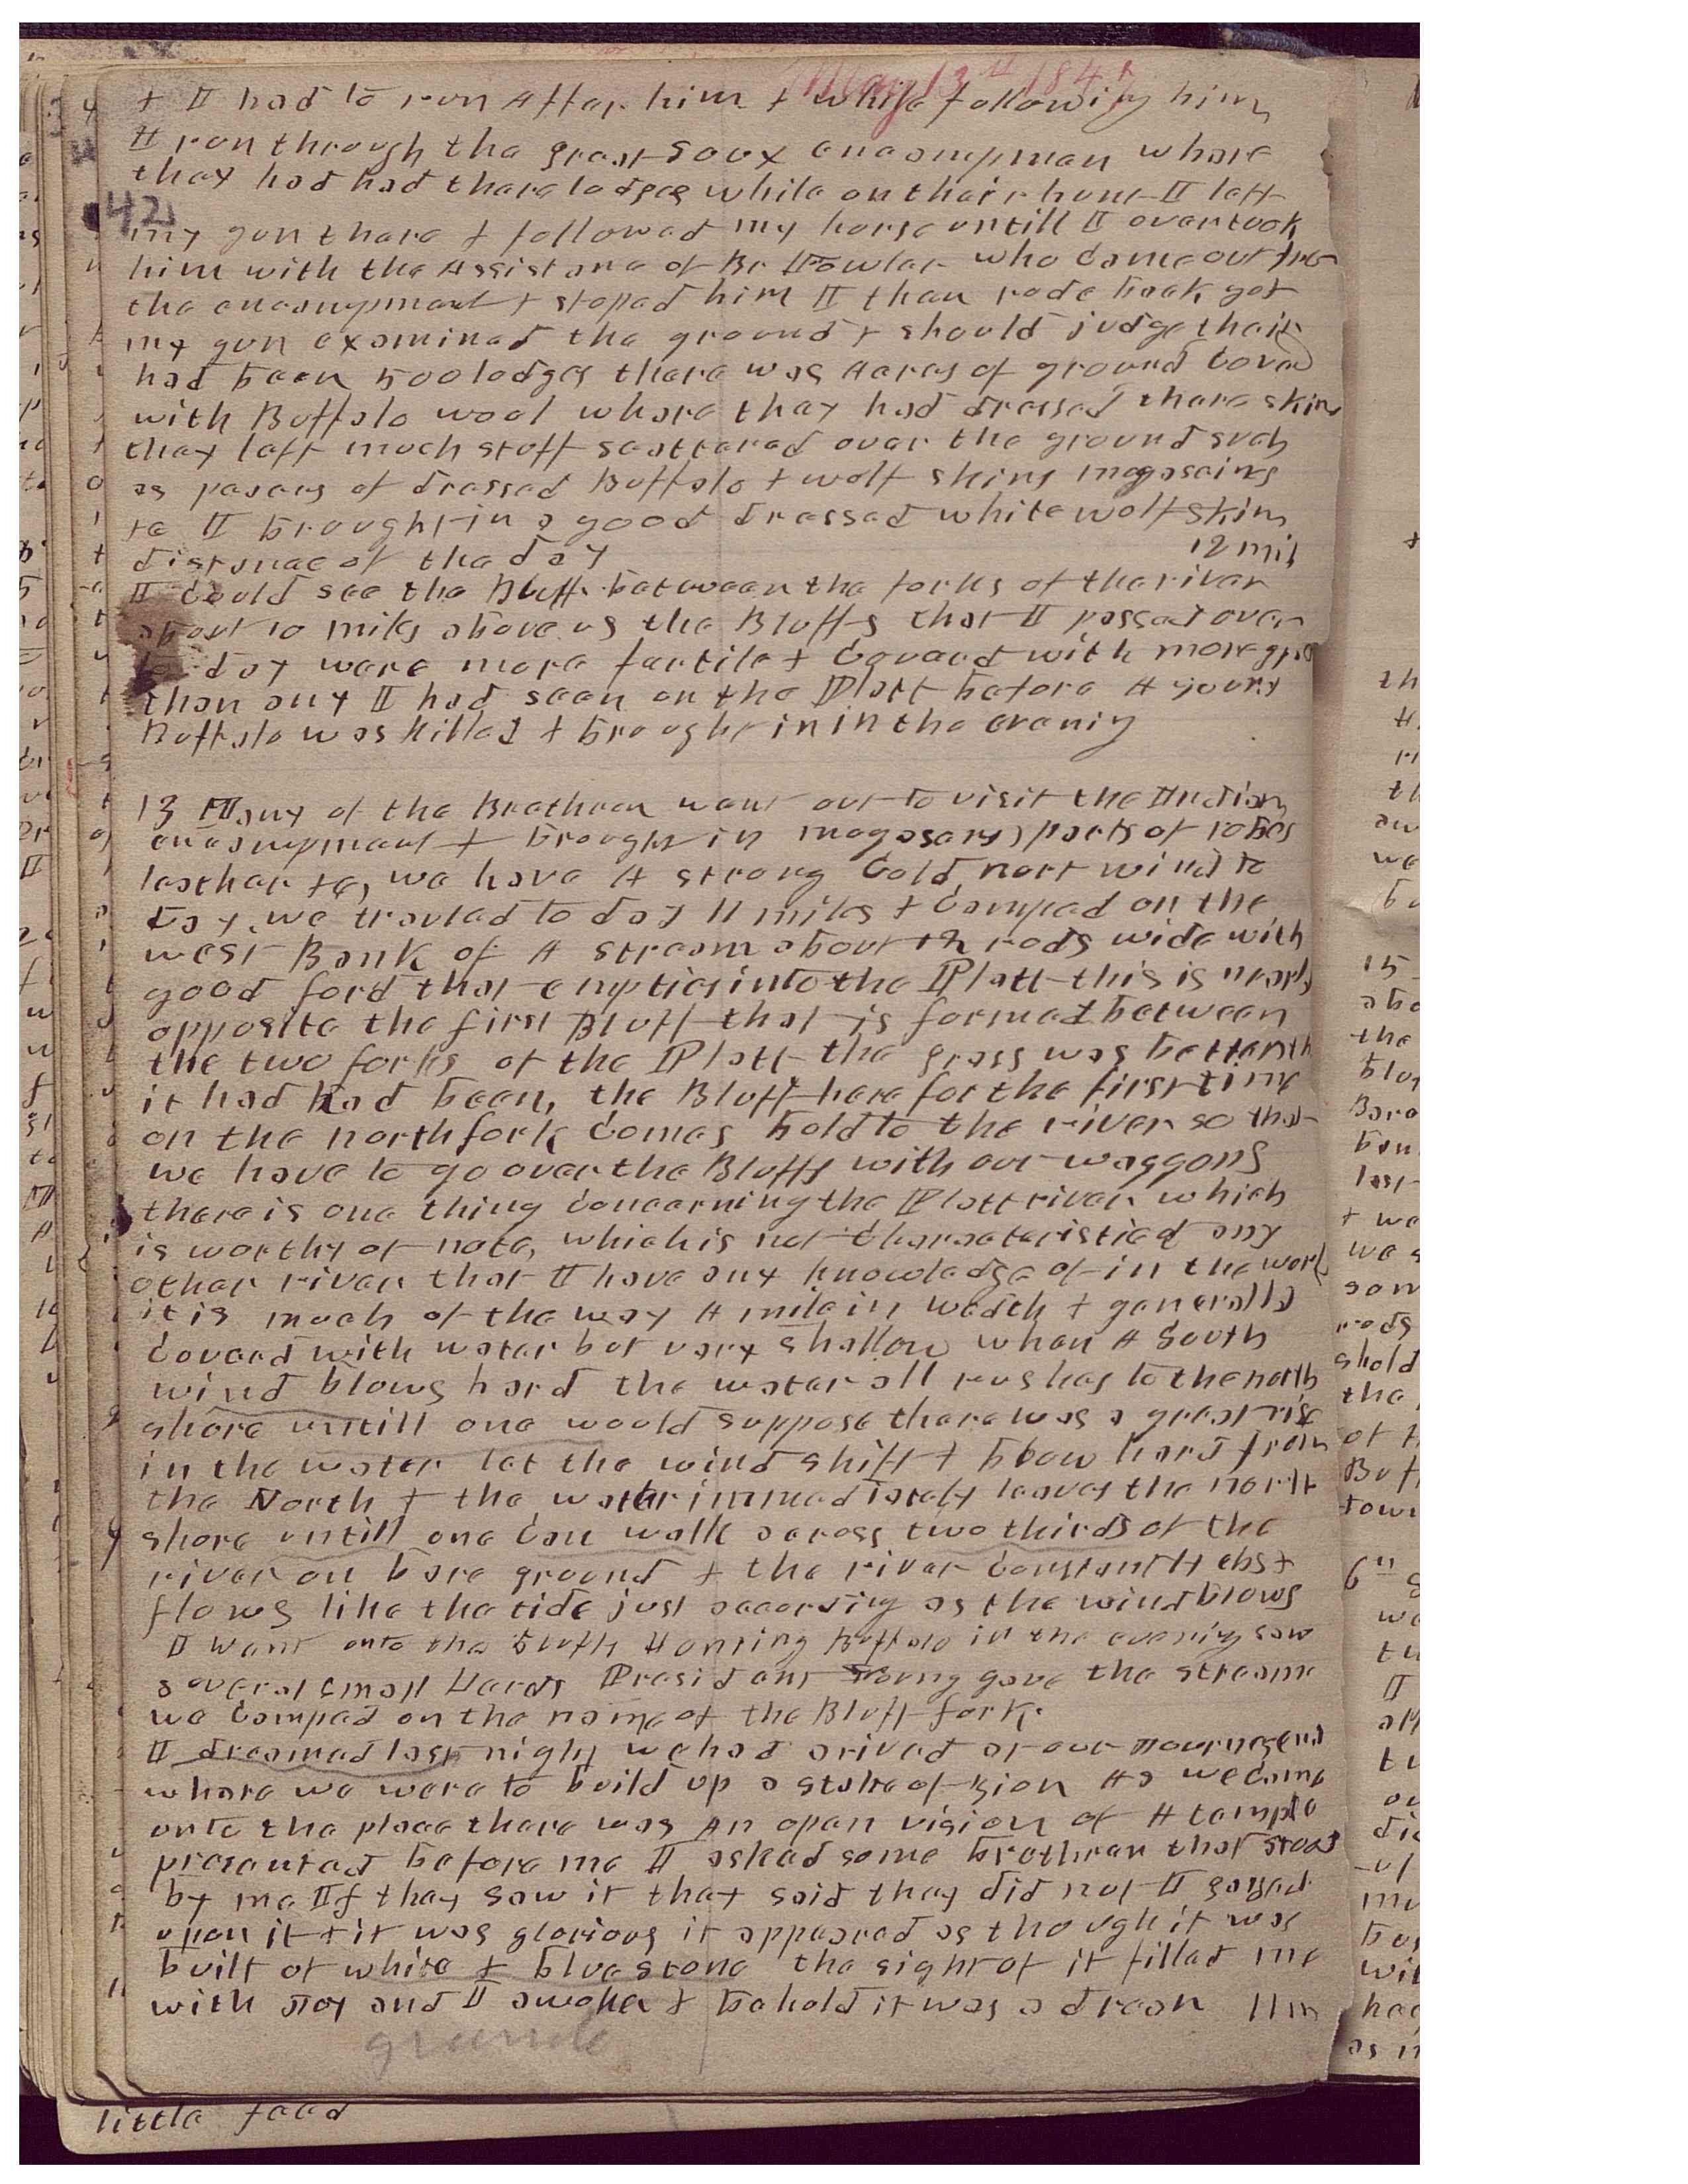 May 13th 1847
& I had to run After him & while following him
I run through the great Soux encampmen whare
42
thay had had there lodges while on their hunt I left
my gun there & followed my horse untill I overtook
him with the Assistanc of Br Fowler who came out from
the encampment & stoped him I then rode back got
my gun examined the ground & should judge their
had been 500 lodges there was Acres of ground coverd
with Buffalo wool whare thay had dressed there skins
they left much stuff scattered over the ground such
as peaces of dressed Buffalo & wolf skins mogasoins
&c I brought in a good dressed white wolf skin
distance of the day 12 mils
I could see the Bluff between the forks of the river
about 10 miles above us the Bluffs that I passed over
to day were more fertile & coverd with more gras
than any I had seen on the Platt before A young
Buffalo was killed & brought in in the evenig
13 Many of the Brethren went out to visit the Indian
encampment & brought in mogasons, parts of robes
leather &c, we have A strong cold nort wind to
day. we traveled to day 11 miles & camped on the
west Bank of A stream about 12 rods wide with
good ford that empties into the Platt this is nearly
opposite the first Bluff that is formed between
the two forks of the Platt the grass was better th
it had had been, the Bluff here for the first time
on the north fork comes bold to the river so that
we have to go over the Bluffs with our waggons
there is one thing concerning the Platt river which
is worthy of note, which is not characteristicd any
other river that I have any knowledge of in the world
it is much of the way A mile in wedth & generally
coverd with water but very shallow when A South
wind blows hard the water all rushes to the north
shore untill one would suppose there was a great rise
in the water let the wind shift & blow hard from
the North & the water immediately leaves the north
shore untill one can walk across two thirds of the
river on bare ground & the river constantly ebs &
flows like the tide just according as the wind blows
I went onto the Bluffs Hunting Buffalo in the evenig saw
several small Herds President Young gave the stream
we camped on the name of the Bluff fork.
I dreamed last night we had arived at our Journeys end
whare we were to build up a stake of Zion As we came
onto the place there was An open vision of A temple
presented before me I asked some brethren that stood
by me If they saw it they said they did not I gazed
upon it & it was glorious it appeared as though it was
built of white & blue stone the sight of it filled me
with Joy and I awoke & behold it was a dream 11 m
little feed